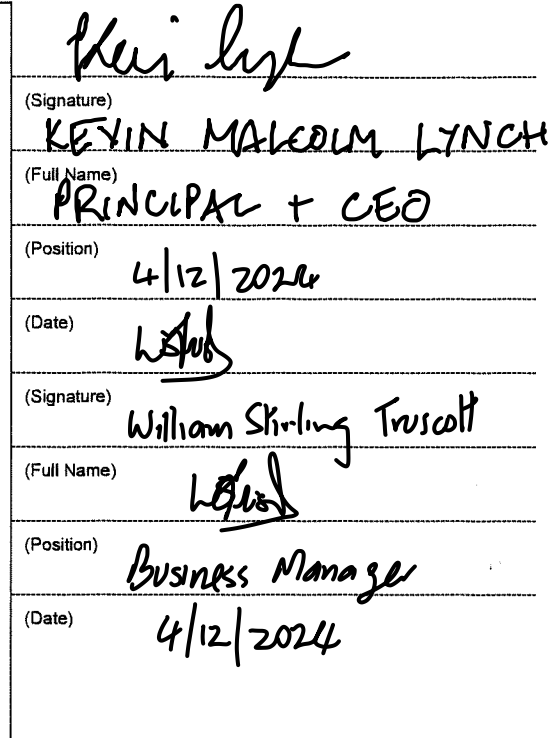 (Signature)
KEVIN MALCOLM LYNCH
(Full Name)
PRINCIPAL + CEO
(Position)
4/12/2024
(Date)
(Signature)
William Stirling Truscott
(Full Name)
(Position)
Business Manager
(Date)
4/12/2024